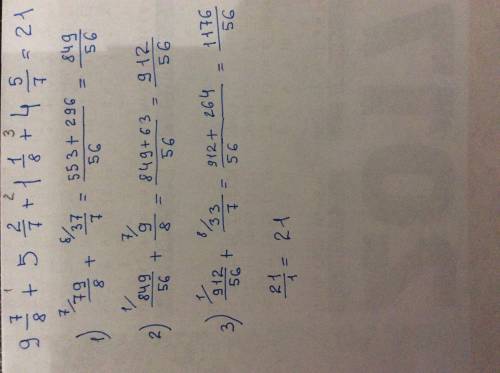 9 7/8 +¹ 5 2/7 +² 1 1/8 +³ 4 5/7 = 21
1) ⁷/79/8 + ⁸/37/7 = 553 + 296/56 = 849/56
2) ¹/849/56 + ⁷/9/8 = 849 + 63/56 = 912/56
3) ¹/912/56 + ⁸/33/7 = 912 + 264/56 = 1176/56
21/1 = 21